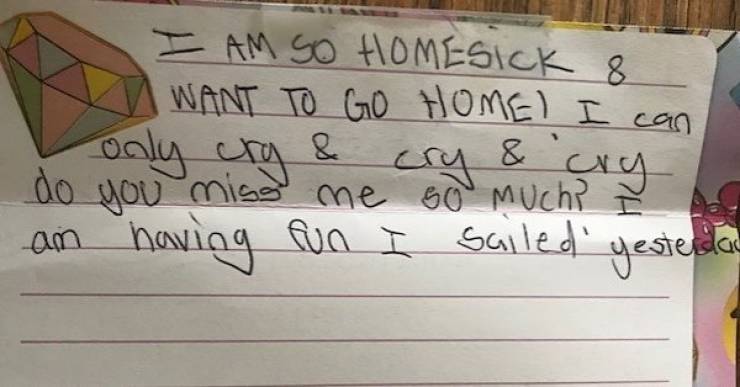 I AM SO HOMESICK &
WANT TO GO HOME! I can
only cry & cry & cry
do you miss me so much? I
am having fun I sailed yesterda